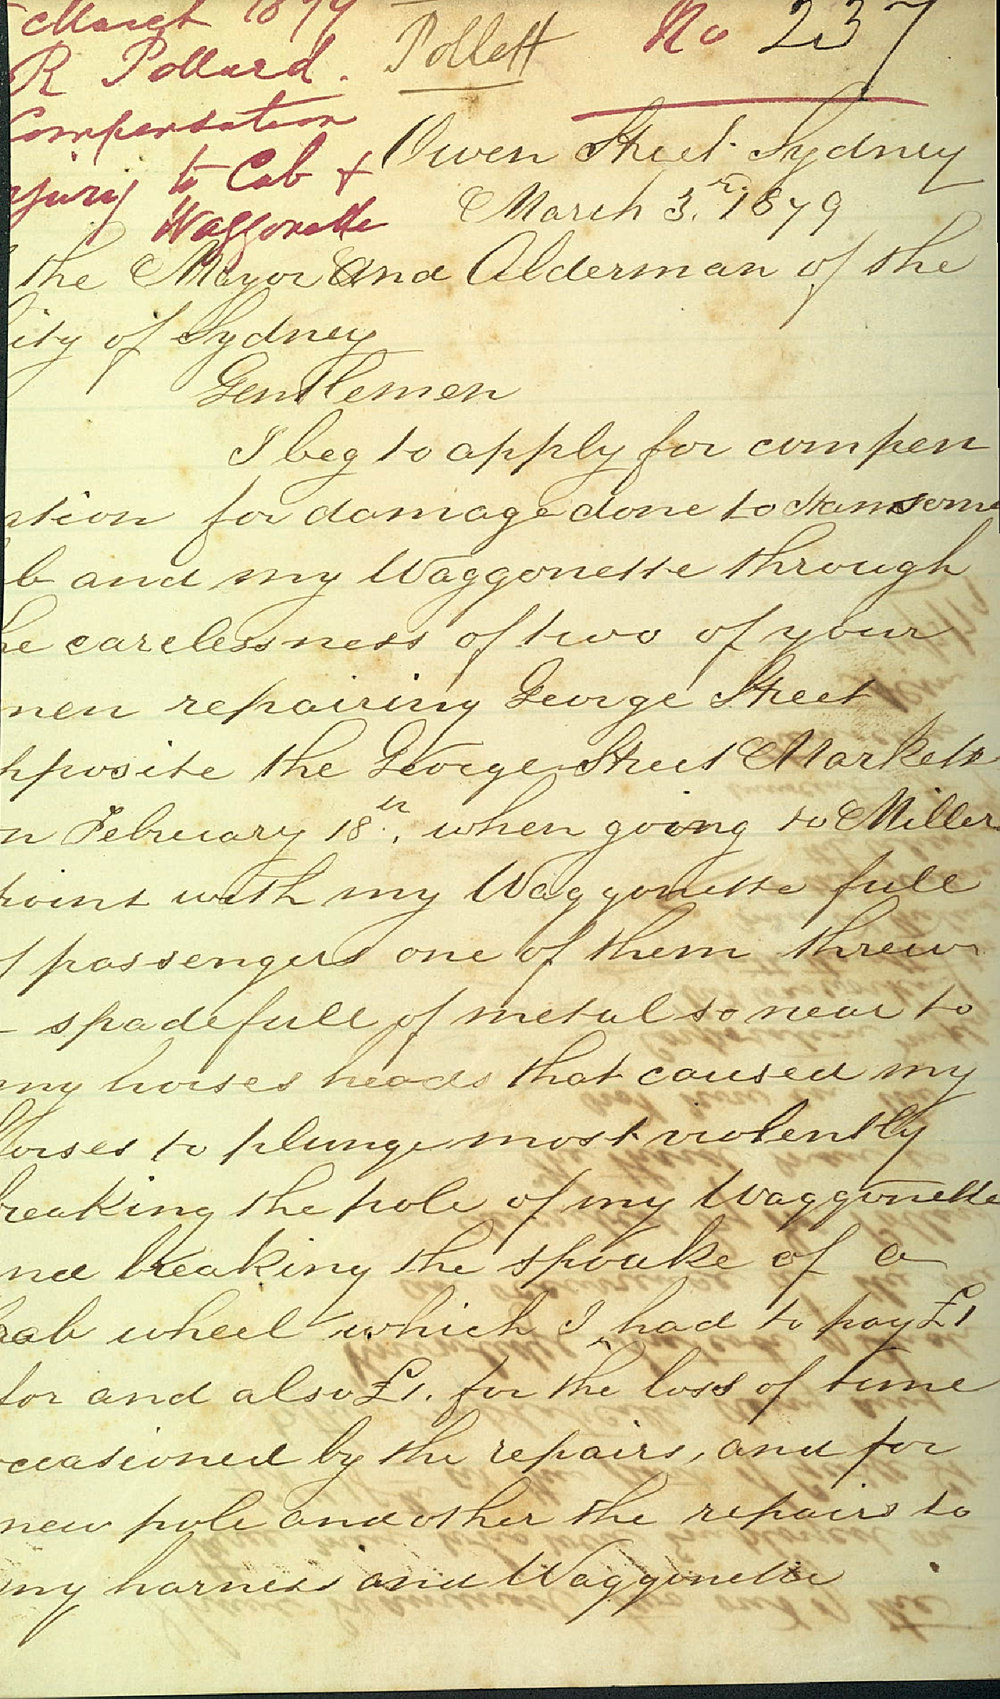 March 1879
R Pollard.
Compensation
njury to Cab &
Waggonette
Pollett
No 237
Owen Street Sydney
March 3.rd 1879
the Mayor And Alderman of the
ity of Sydney
Gentlemen
I beg to apply for compen
ation for damage done to Hansome
b and my Waggonette through
he carelessness of two of your
men repairing George Street
pposite the George Street Markets
on February 18th, when going to Miller
Point with my Waggonette full
f passengers one of them threw
spadefull of metal so near to
my horses heads that caused my
Horses to plunge most violently
breaking the pole of my Waggonette
nd breaking the spouke of a
Cab wheel which I had to pay £1
for and also £1. for the loss of time
ccasioned by the repairs, and for
new pole and other the repairs to
my harness and Waggonette